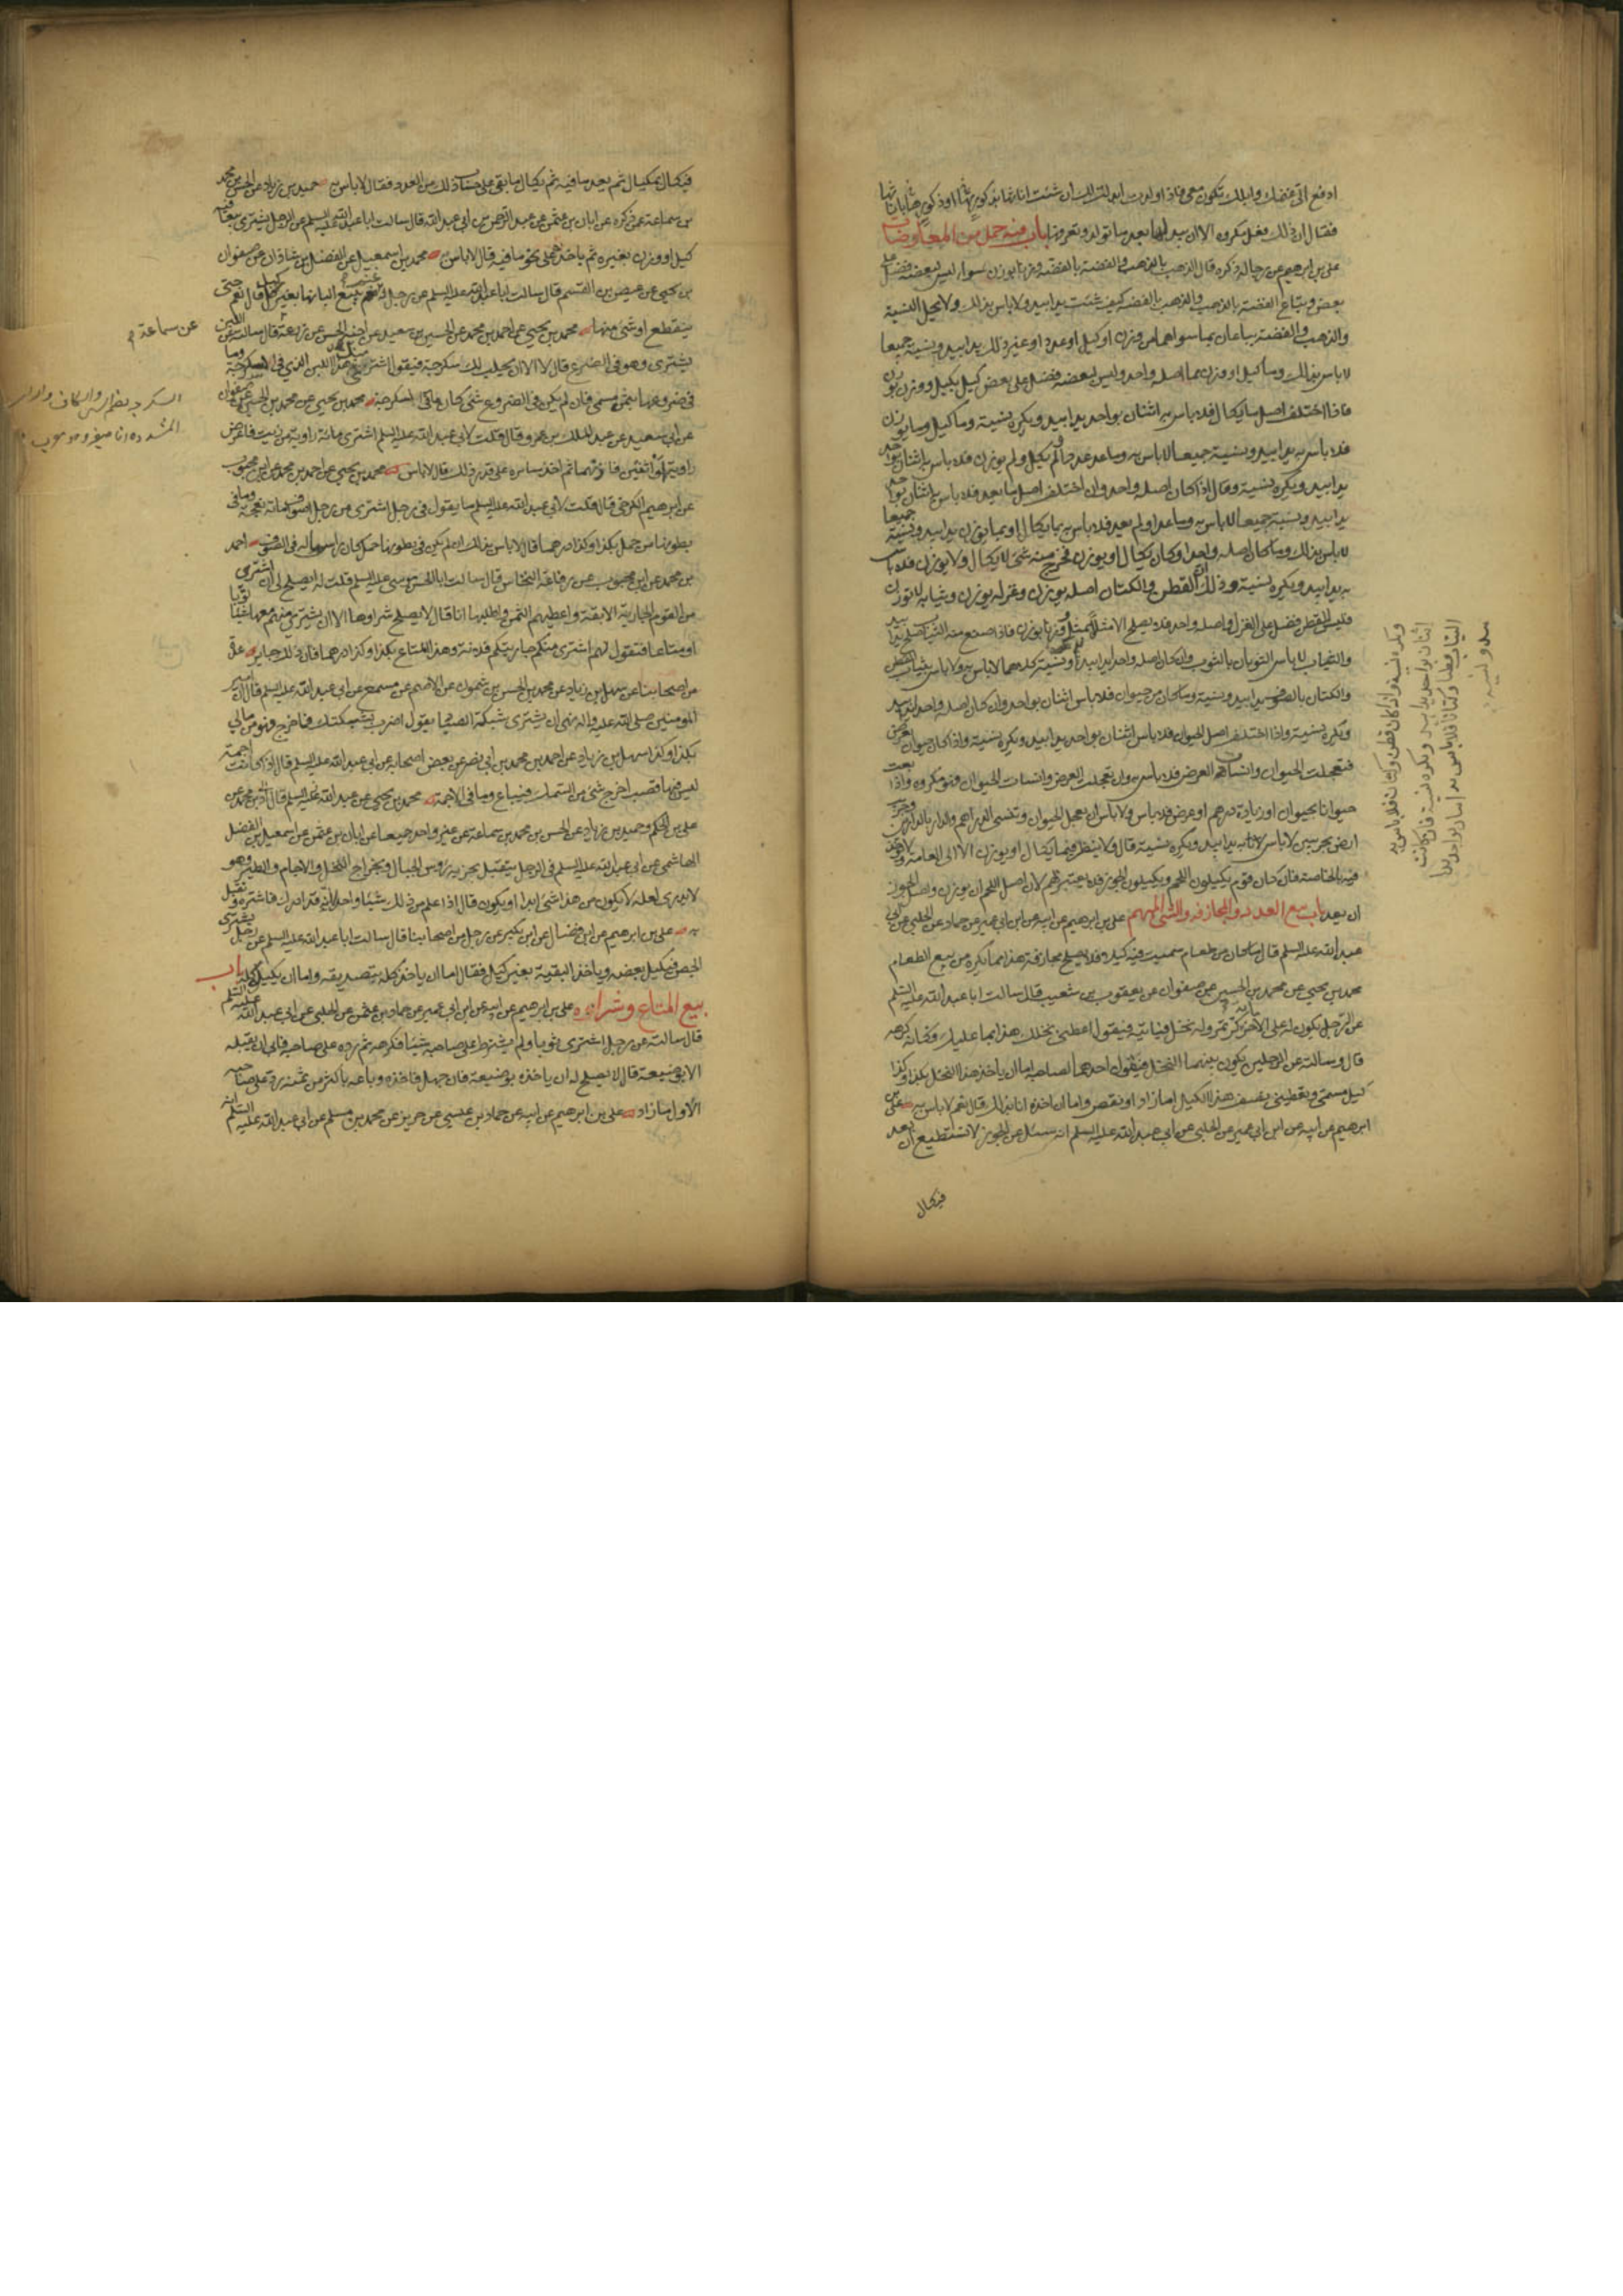 ادفع الي غنمك وابلك تكون معي فاذا ولدت ابدلت لك ان شئت اناثها بذكورتها او ذكورتها باناثها
فقال ان ذلك فعل مكروه الا ان يبدلها بعد ما تولد وتعرفها باب فيه جمل من المعاوضات
علي بن ابرهيم عن رجاله ذكره قال الذهب بالذهب والفضة بالفضة وزنا بوزن سواء ليس لبعضه فضل على
بعض ويباع الفضة بالذهب والذهب بالفضة كيف شئت يدا بيد ولا باس بذلك ولا يحل النسية
والذهب والفضة يباعان بما سواهما من وزن او كيل او عدد او غير ذلك يدا بيد ونسية جميعا
لا باس بذلك وما كيل او وزن مما اصله واحد وليس لبعضه فضل على بعض كيل بكيل ووزن بوزن
فاذا اختلف اصل ما يكال فلا باس به اثنان بواحد يدا بيد ويكره نسية وما كيل وما يوزن
فلا باس به يدا بيد ونسية جميعا لا باس به وما عد عددا ولم يكل ولم يوزن فلا باس به اثنان بواحد
يدا بيد ويكره نسية وقال اذا كان اصله واحدا وان اختلف اصل ما يعد فلا باس به اثنان بواحد
يدا بيد ونسية جميعا لا باس به وما عد او لم يعد فلا باس به بما يكال او بما يوزن يدا بيد ونسية جميعا
لا باس بذلك وما كان اصله واحدا وكان يكال او يوزن فخرج منه شي لا يكال ولا يوزن فلا باس
به يدا بيد ويكره نسية وذلك ان القطن والكتان اصله يوزن وغزله يوزن وثيابه لا توزن
فليس للقطن فضل على الغزل واصله واحد فلا يصلح الا مثلا بمثل وزنا بوزن فاذا صنع منه الثياب صلح يدا بيد
والثياب لا باس الثوبان بالثوب وان كان اصله واحدا يدا بيد
والكتان بالصوف يدا بيد ونسية وما كان من حيوان فلا باس اثنان بواحد وان كان اصله واحدا يدا بيد
ويكره نسية واذا اختلف اصل الحيوان فلا باس اثنان بواحد يدا بيد ويكره نسية واذا كان حيوان بعرض
فتعجلت الحيوان وانسات العرض فلا باس به وان تعجلت العرض وانسات الحيوان فهو مكروه واذا بعت
حيوانا بحيوان او زيادة درهم او عرض فلا باس ولا باس ان يعجل الحيوان وتنسى الدراهم والدار بالدارين وجريب
ارض بجريبين لا باس به يدا بيد ويكره نسية قال ولا ينظر فيما يكال او يوزن الا الى العامة ولا يؤخذ
فيه بالخاصة فان كان قوم يكيلون اللحم ويكيلون الجوز فلا يعتبر بهم لان اصل اللحم ان يوزن واصل الجوز
ان يعد باب بيع العدد والمجازفة والشي المبهم علي بن ابرهيم عن ابيه عن ابن ابي عمير عن حماد عن الحلبي عن ابي
عبد الله عليه السلم قال ما كان من طعام سميت فيه كيلا فلا يصلح مجازفة هذا مما يكره من بيع الطعام
محمد بن يحيى عن محمد بن الحسين عن صفوان عن يعقوب بن شعيب قال سالت ابا عبد الله عليه السلم
عن الرجل يكون له على الاخر مائة كر تمر وله نخل فياتيه فيقول اعطني نخلك هذا بما عليك وكانه كرهه
قال وسالت عن الرجلين يكون بينهما النخل فيقول احدهما لصاحبه اما ان ياخذ هذا النخل بكذا وكذا
كيل مسمى وتعطيني نصف هذا الكيل اما زاد او نقص واما ان اخذه انا بذلك قال نعم لا باس به علي بن
ابرهيم عن ابيه عن ابن ابي عمير عن الحلبي عن ابي عبد الله عليه السلم انه سئل عن الجوز لا نستطيع ان نعد
فيكال
ويكره نسية واذا كان قطن وكتان فلا باس به
اثنان بواحد يدا بيد ويكره نسية فان كانت
الثياب قطنا وكتانا فلا باس به اثنان بواحد يدا
بيد ونسية
فيكال بمكيال ثم يعد ما فيه ثم يكال ما بقي على حساب ذلك من العدد فقال لا باس به حميد بن زياد عن الحسن بن محمد
بن سماعة عمن ذكره عن ابان بن عثمن عن عبد الرحمن بن ابي عبد الله قال سالت ابا عبد الله عليه السلم عن الرجل يشتري بيعا فيه
كيل او وزن بغيره ثم ياخذ على نحو ما فيه قال لا باس محمد بن اسمعيل عن الفضل بن شاذان عن صفوان
بن يحيى عن عيص بن القسم قال سالت ابا عبد الله عليه السلم عن رجل له نعم يبيع البانها بغير كيل قال نعم حتى
ينقطع او شئ منها محمد بن يحيى عن احمد بن محمد عن الحسين بن سعيد عن اخيه الحسن عن زرعة قال سالته عن اللبن
عن سماعة
يشترى وهو في الضرع قال لا الا ان يحلب لك سكرجة فيقول اشتر مني هذا اللبن الذي في السكرجة وما
في ضروعها بثمن مسمى فان لم يكن في الضروع شئ كان ما في السكرجة محمد بن يحيى عن محمد بن الحسين عن صفوان
السكرجة بضم السين والكاف والراء
المشددة اناء صغير وهو معرب
عن ابي سعيد عن عبد الملك بن عمرو قال قلت لابي عبد الله عليه السلم اشتري مائة راوية من زيت فاعترض
راوية او اثنتين فاتزنهما ثم اخذ سايره على قدر ذلك قال لا باس محمد بن يحيى عن احمد بن محمد عن ابن محبوب
عن ابرهيم الكرخي قال قلت لابي عبد الله عليه السلم ما تقول في رجل اشترى من رجل اصواف مائة نعجة وما في
بطونها من حمل بكذا وكذا درهما قال لا باس بذلك ان لم يكن في بطونها حمل كان راس ماله في الصوف احمد
بن محمد عن ابن محبوب عن رفاعة النخاس قال سالت ابا الحسن موسى عليه السلم قلت له ايصلح لي ان اشتري
من القوم الجارية الابقة واعطيهم الثمن واطلبها انا قال لا يصلح شراوها الا ان يشتري منهم معها شيئا ثوبا
او متاعا فتقول لهم اشتري منكم جاريتكم فلانة وهذا المتاع بكذا وكذا درهما فان ذلك جايز عدة
من اصحابنا عن سهل بن زياد عن محمد بن الحسن بن شمون عن الاصم عن مسمع عن ابي عبد الله عليه السلم قال ان امير
المومنين صلى الله عليه واله نهى ان يشترى شبكة الصياد يقول اضرب بشبكتك فما خرج فهو من مالي
بكذا وكذا سهل بن زياد عن احمد بن محمد بن ابي نصر عن بعض اصحابه عن ابي عبد الله عليه السلم قال اذا كانت اجمة
ليس فيها قصب اخرج شئ من السمك فيباع وما في الاجمة محمد بن يحيى عن عبد الله بن محمد عن
علي بن الحكم وحميد بن زياد عن الحسن بن محمد بن سماعة عن غير واحد جميعا عن ابان بن عثمن عن اسمعيل بن الفضل
الهاشمي عن ابي عبد الله عليه السلم في الرجل يتقبل بجزية رؤس الجبال وبخراج النخل والاجام والطير وهو
لا يدري لعله لا يكون من هذا شئ ابدا او يكون قال اذا علم من ذلك شيئا واحدا انه قد ادرك فاشتره وتقبل
به علي بن ابرهيم عن ابن فضال عن ابن بكير عن رجل من اصحابنا قال سالت ابا عبد الله عليه السلم عن رجل يشتري
الجص فيكيل بعضه وياخذ البقية بغير كيل فقال اما ان ياخذ كله بتصديقه واما ان يكيله كله باب
بيع المتاع وشراه علي بن ابرهيم عن ابيه عن ابن ابي عمير عن حماد بن عثمن عن الحلبي عن ابي عبد الله عليه السلم
قال سالته عن رجل اشترى ثوبا ولم يشترط على صاحبه شيئا فكرهه ثم رده على صاحبه فابى ان يقبله
الا بوضيعة قال لا يصلح له ان ياخذه بوضيعة فان جهل فاخذه وباعه باكثر من ثمنه رد على صاحبه
الاول ما زاد علي بن ابرهيم عن ابيه عن حماد بن عيسى عن حريز عن محمد بن مسلم عن ابي عبد الله عليه السلم انه